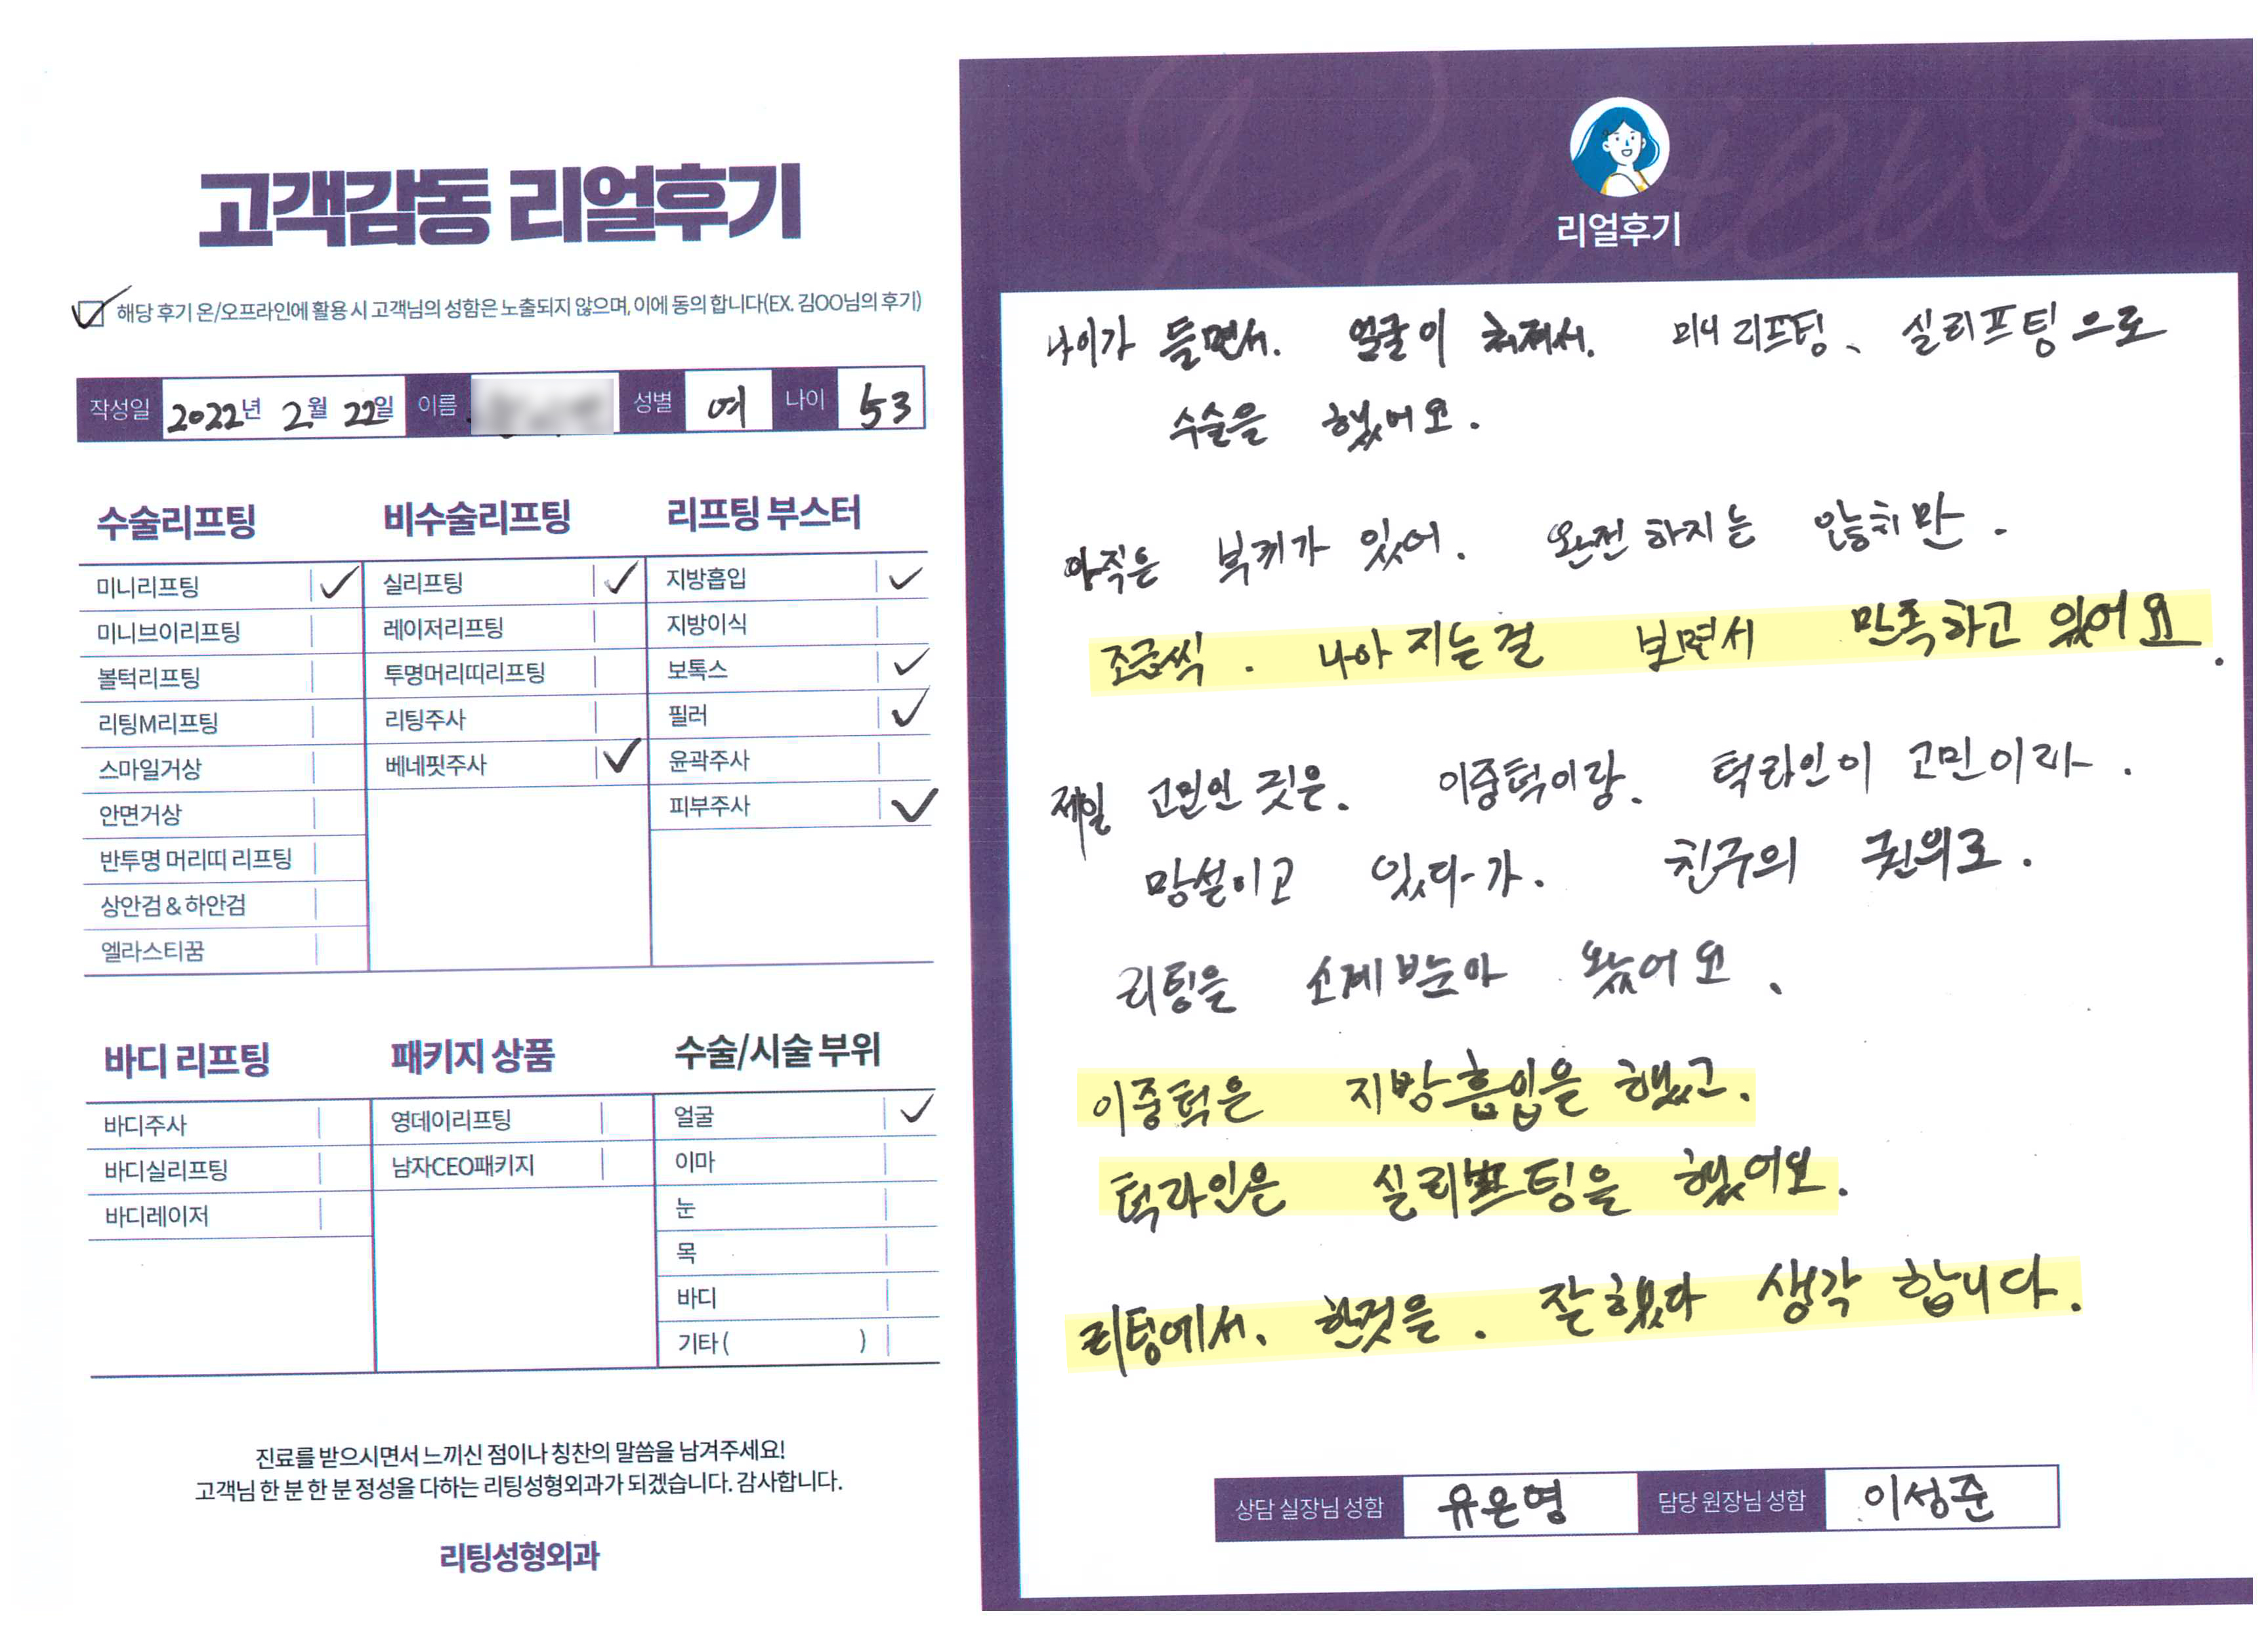 고객감동 리얼후기
해당 후기 온/오프라인에 활용 시 고객님의 성함은 노출되지 않으며, 이에 동의 합니다(EX. 김OO님의 후기)
작성일 2022년 2월 22일 이름 성별 여 나이 53
수술리프팅
미니리프팅
미니브이리프팅
볼턱리프팅
리팅M리프팅
스마일거상
안면거상
반투명 머리띠 리프팅
상안검 & 하안검
엘라스티꿈
비수술리프팅
실리프팅
레이저리프팅
투명머리띠리프팅
리팅주사
베네핏주사
리프팅 부스터
지방흡입
지방이식
보톡스
필러
윤곽주사
피부주사
바디 리프팅
바디주사
바디실리프팅
바디레이저
패키지 상품
영데이리프팅
남자CEO패키지
수술/시술 부위
얼굴
이마
눈
목
바디
기타 ( )
진료를 받으시면서 느끼신 점이나 칭찬의 말씀을 남겨주세요!
고객님 한 분 한 분 정성을 다하는 리팅성형외과가 되겠습니다. 감사합니다.
리팅성형외과
Review
리얼후기
나이가 들면서. 얼굴이 쳐져서. 미니 리프팅、 실리프팅으로
수술을 했어요.
아직은 붓기가 있어. 완전하지는 않치만.
조금씩. 나아 지는걸 보면서 만족하고 있어요.
제일 고민인 곳은. 이중턱이랑. 턱라인이 고민이라.
망설이고 있다가. 친구의 권의로.
리팅을 소개받아 왔어요.
이중턱은 지방흡입을 했고.
턱라인은 실리프팅을 했어요.
리팅에서. 한것을. 잘했다 생각 합니다.
상담 실장님 성함 유은영 담당 원장님 성함 이성준